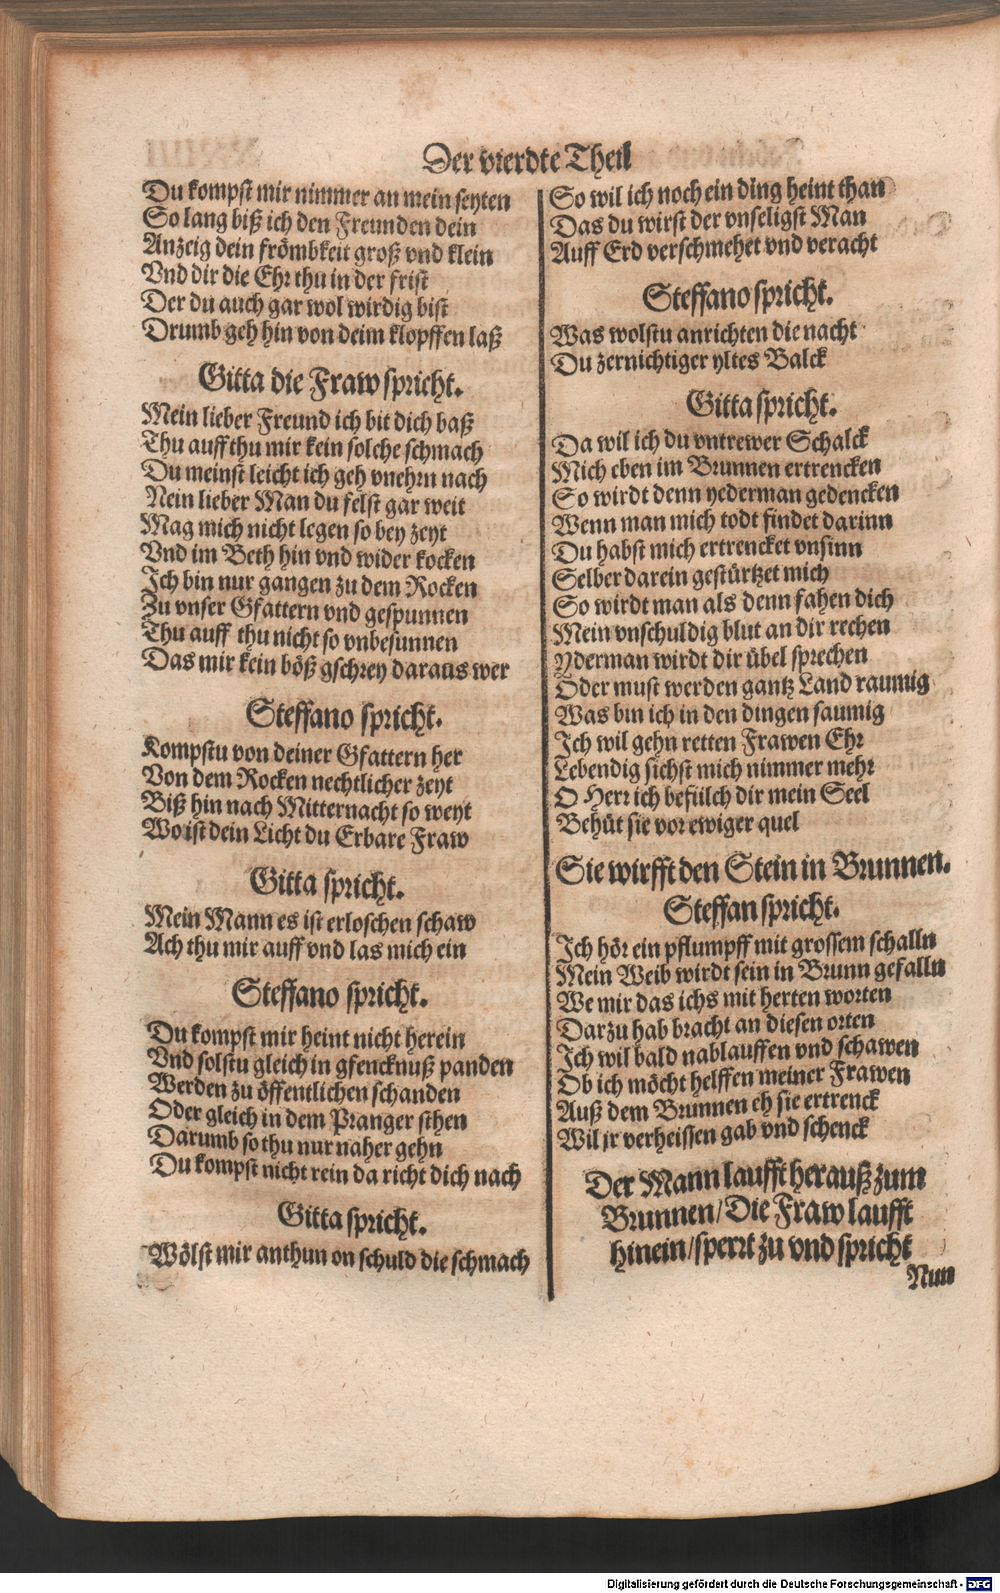 Der vierdte Theil
Du kompst mir nimmer an mein seyten
So lang biß ich den Freunden dein
Anzeig dein frömbkeit groß vnd klein
Vnd dir die Ehr thu in der frist
Der du auch gar wol wirdig bist
Drumb geh hin von deim klopffen laß
Gitta die Fraw spricht.
Mein lieber Freund ich bit dich baß
Thu auff thu mir kein solche schmach
Du meinst leicht ich geh vnehrn nach
Nein lieber Man du felst gar weit
Mag mich nicht legen so bey zeyt
Vnd im Beth hin vnd wider kocken
Ich bin nur gangen zu dem Rocken
Zu vnser Gfattern vnd gespunnen
Thu auff thu nicht so vnbesunnen
Das mir kein böß gschrey daraus wer
Steffano spricht.
Kompstu von deiner Gfattern her
Von dem Rocken nechtlicher zeyt
Biß hin nach Mitternacht so weyt
Wo ist dein Licht du Erbare Fraw
Gitta spricht.
Mein Mann es ist erloschen schaw
Ach thu mir auff vnd las mich ein
Steffano spricht.
Du kompst mir heint nicht herein
Vnd solstu gleich in gfencknuß panden
Werden zu öffentlichen schanden
Oder gleich in dem Pranger sthen
Darumb so thu nur naher gehn
Du kompst nicht rein da richt dich nach
Gitta spricht.
Wölst mir anthun on schuld die schmach
So wil ich noch ein ding heint than
Das du wirst der vnseligst Man
Auff Erd verschmehet vnd veracht
Steffano spricht.
Was wolstu anrichten die nacht
Du zernichtiger yltes Balck
Gitta spricht.
Da wil ich du vntrewer Schalck
Mich eben im Brunnen ertrencken
So wirdt denn yederman gedencken
Wenn man mich todt findet darinn
Du habst mich ertrencket vnsinn
Selber darein gestürtzet mich
So wirdt man als denn fahen dich
Mein vnschuldig blut an dir rechen
Yderman wirdt dir übel sprechen
Oder must werden gantz Land raumig
Was bin ich in den dingen saumig
Ich wil gehn retten Frawen Ehr
Lebendig sichst mich nimmer mehr
O Herr ich befülch dir mein Seel
Behüt sie vor ewiger quel
Sie wirfft den Stein in Brunnen.
Steffan spricht.
Ich hör ein pflumpff mit grossem schalln
Mein Weib wirdt sein in Brunn gefalln
We mir das ichs mit herten worten
Darzu hab bracht an diesen orten
Ich wil bald nablauffen vnd schawen
Ob ich möcht helffen meiner Frawen
Auß dem Brunnen eh sie ertrenck
Wil jr verheissen gab vnd schenck
Der Mann laufft herauß zum
Brunnen/Die Fraw laufft
hinein/sperrt zu vnd spricht
Nun
Digitalisierung gefördert durch die Deutsche Forschungsgemeinschaft - DFG